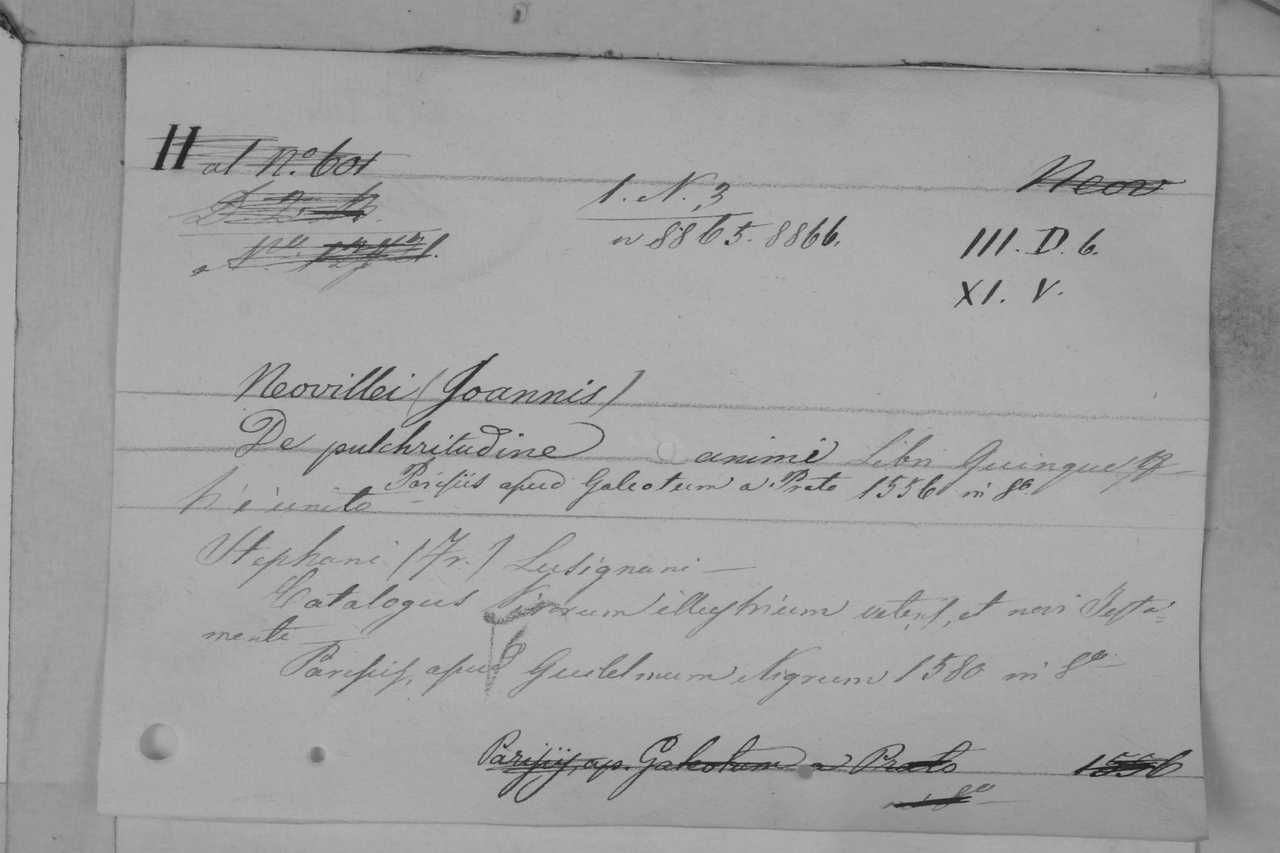 H al No. 601
Neov
1. N. 3
n 8865. 8866.
III. D. 6.
XI. V.
Neovillei (Joannis)
De pulchritudine animi Libri Quinque
Parisiis apud Galeotum a Prato 1556 in 8o
è unito
Stephani (Fr.) Lusignani —
Catalogus Virorum illustrium veteris, et novi Testa=
menti
Parisijs, apud Guilelmum Nigrum 1580 in 8o
Parisijs, ap. Galeotum a Prato 1556
in 8o